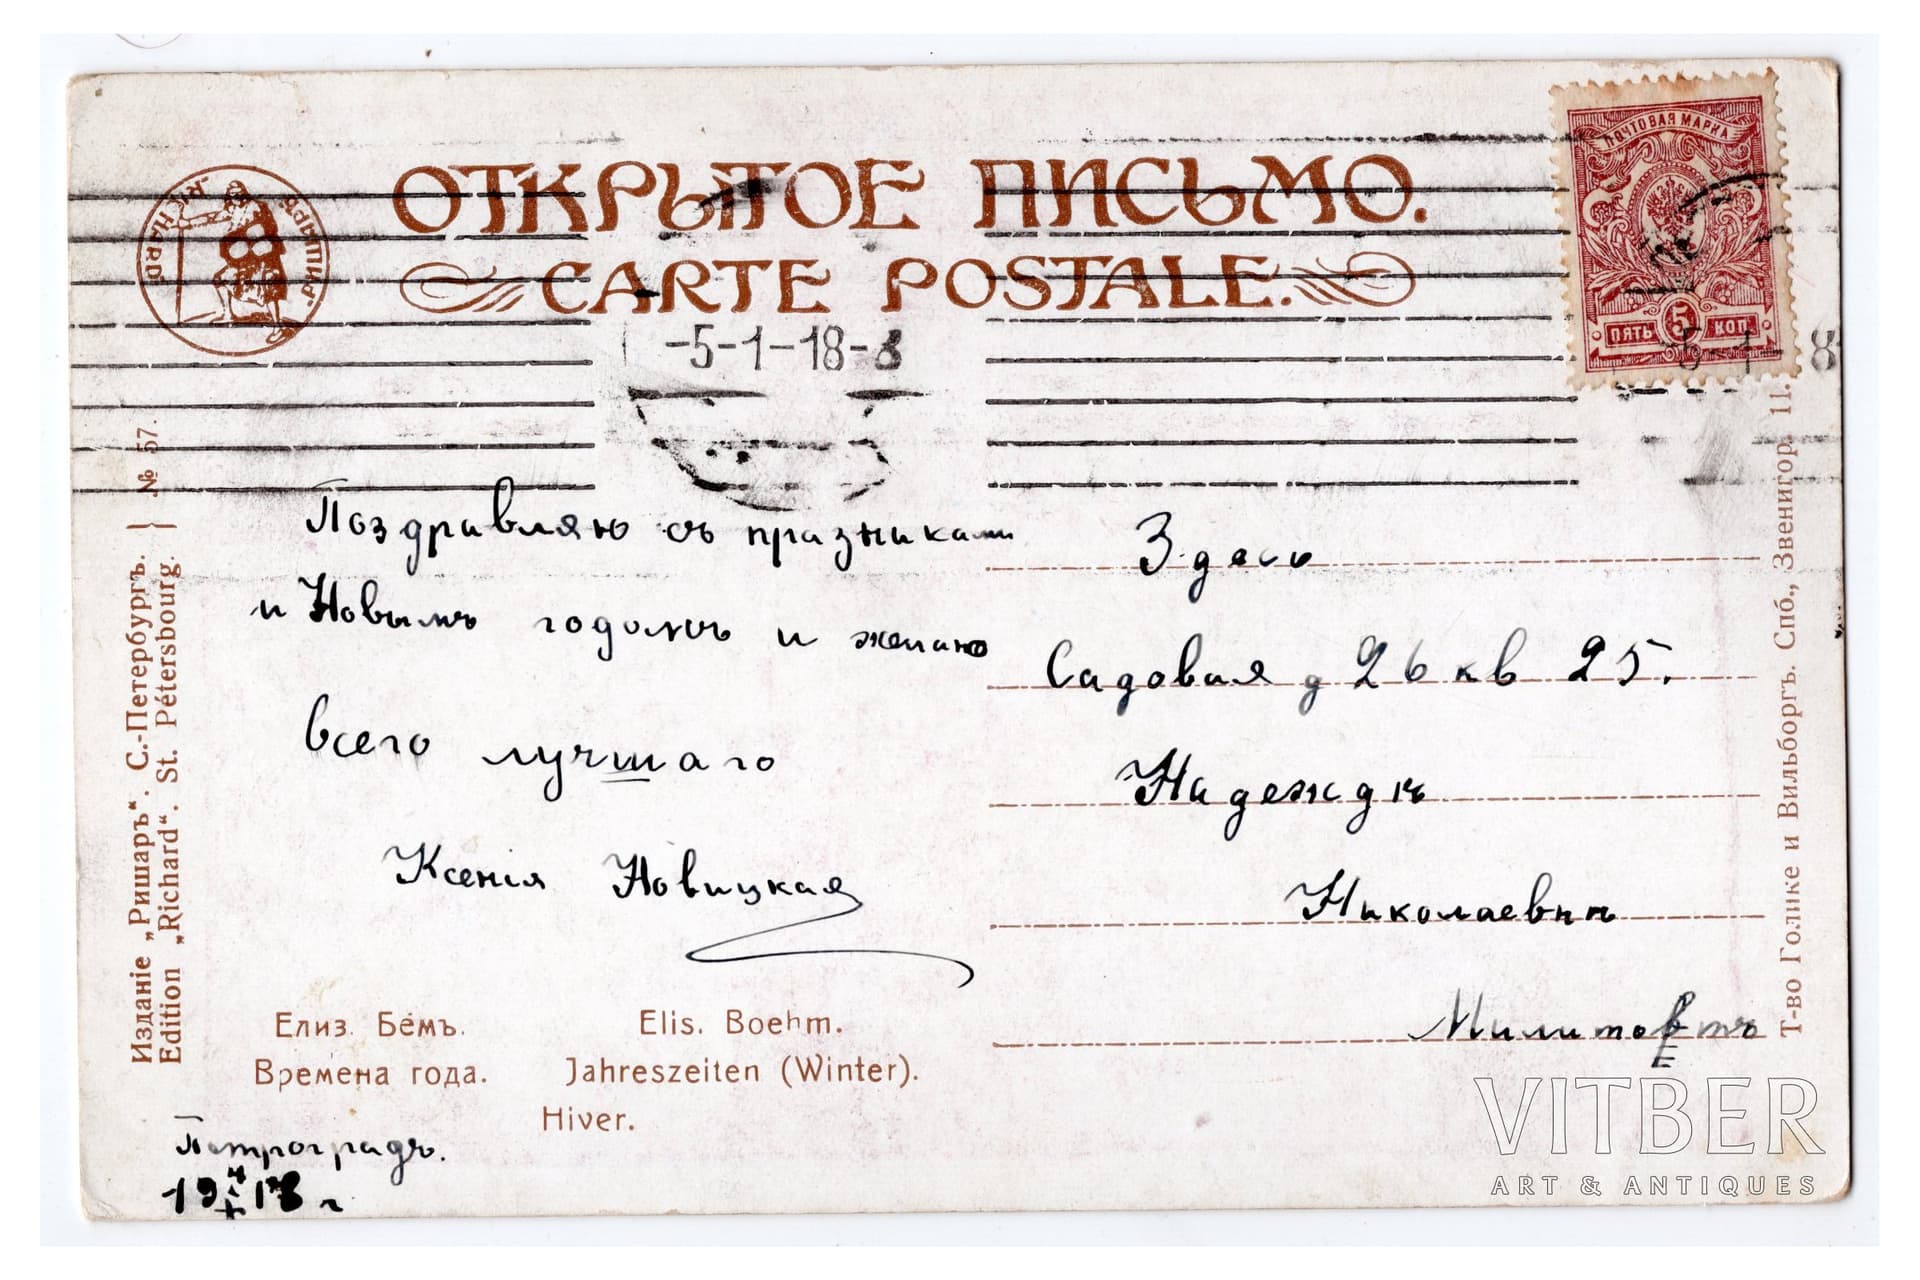 ОТКРЫТОЕ ПИСЬМО.
CARTE POSTALE.
РИШАРЪ
RICHARD
ПОЧТОВАЯ МАРКА
5
ПЯТЬ КОП.
-5-1-18-8
Поздравляю съ празниками
и Новымъ годомъ и желаю
всего лучшаго
Ксенія Новицкая
Здесь
Садовая д 26 кв 25.
Надеждѣ
Николаевнѣ
Елиз. Бёмъ.
Времена года.
Elis. Boehm.
Jahreszeiten (Winter).
Hiver.
Петроградъ.
Изданіе „Ришаръ“. С.-Петербургъ.
Edition „Richard“. St. Pétersbourg.
№ 57.
Т-во Голике и Вильборгъ. Спб., Звенигор. 11.
VITBER
ART & ANTIQUES